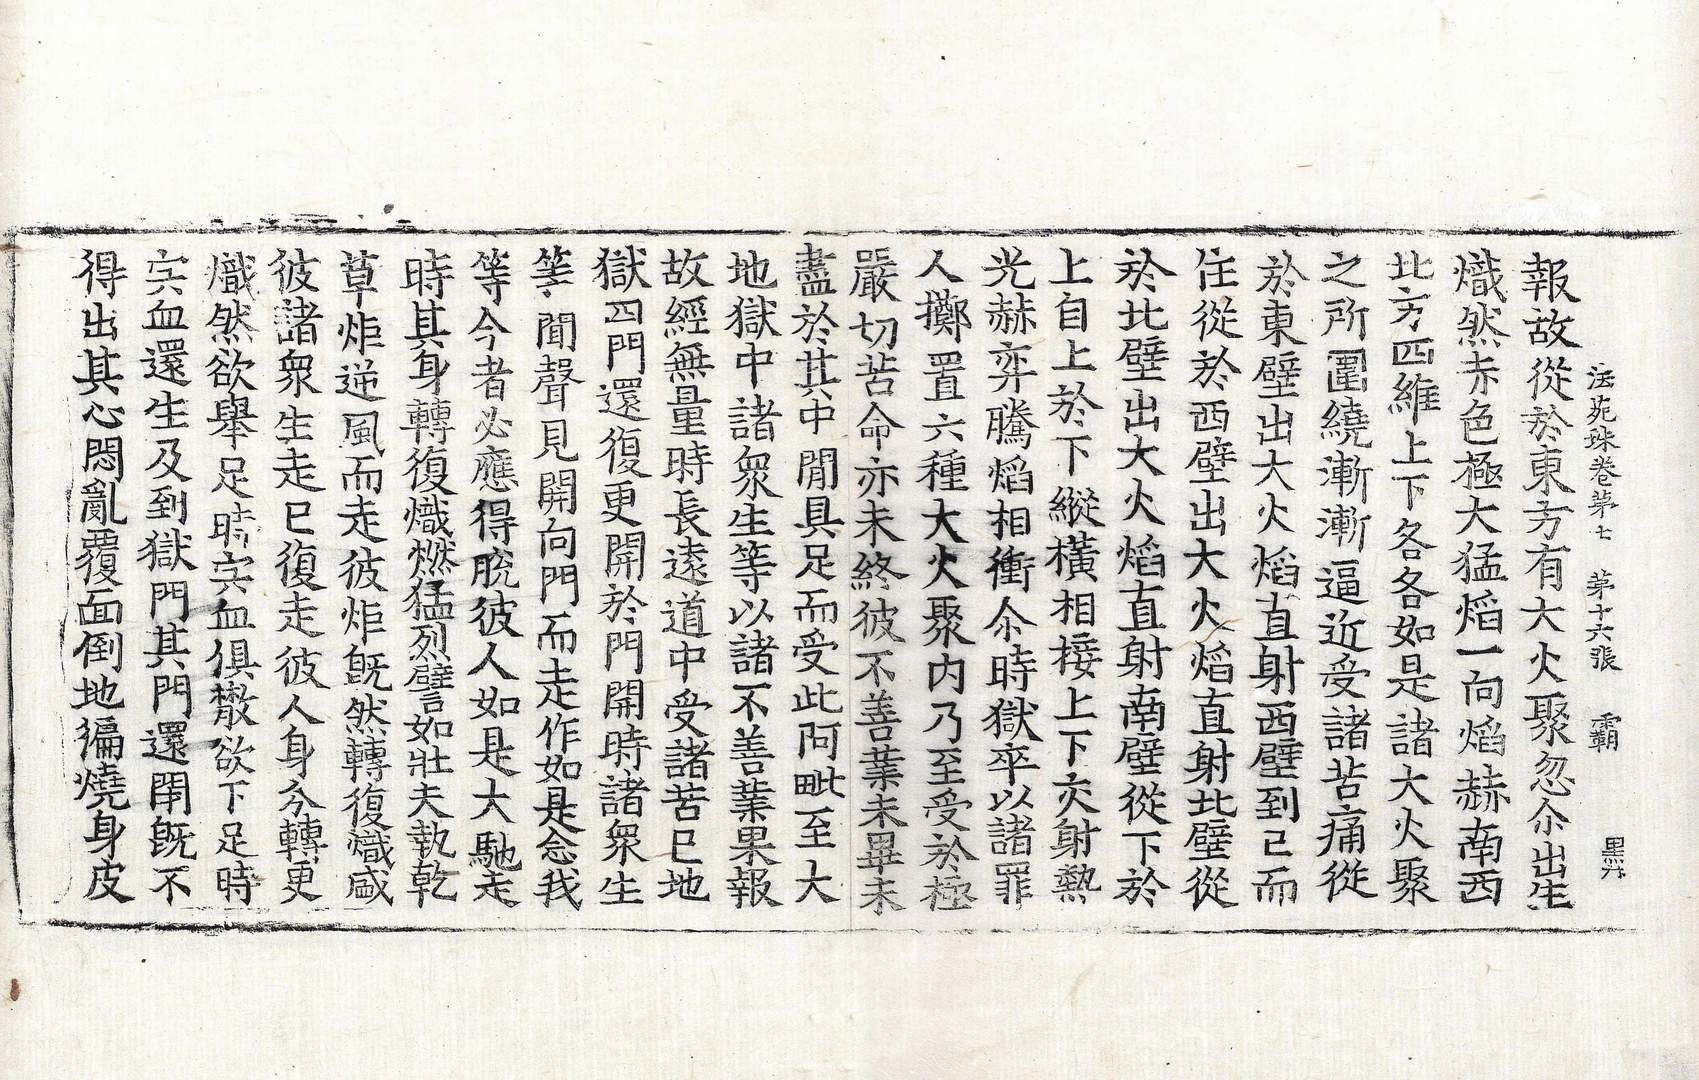 法苑珠卷第七　第十六張　霸　黑丹
報故從於東方有大火聚忽尒出生
熾然赤色極大猛焰一向焰赫南西
北方四維上下各各如是諸大火聚
之所圍繞漸漸逼近受諸苦痛從
於東壁出大火焰直射西壁到已而
住從於西壁出大火焰直射北壁從
於北壁出大火焰直射南壁從下於
上自上於下縱橫相接上下交射熱
光赫弈騰焰相衝尒時獄卒以諸罪
人擲置六種大火聚内乃至受於極
嚴切苦命亦未終彼不善業未畢未
盡於其中閒具足而受此阿毗至大
地獄中諸衆生等以諸不善業果報
故經無量時長遠道中受諸苦已地
獄四門還復更開於門開時諸衆生
等聞聲見開向門而走作如是念我
等今者必應得脫彼人如是大馳走
時其身轉復熾燃猛烈譬如壯夫執乾
草炬逆風而走彼炬旣然轉復熾盛
彼諸衆生走已復走彼人身分轉更
熾然欲舉足時宍血俱散欲下足時
宍血還生及到獄門其門還閇旣不
得出其心悶亂覆面倒地遍燒身皮